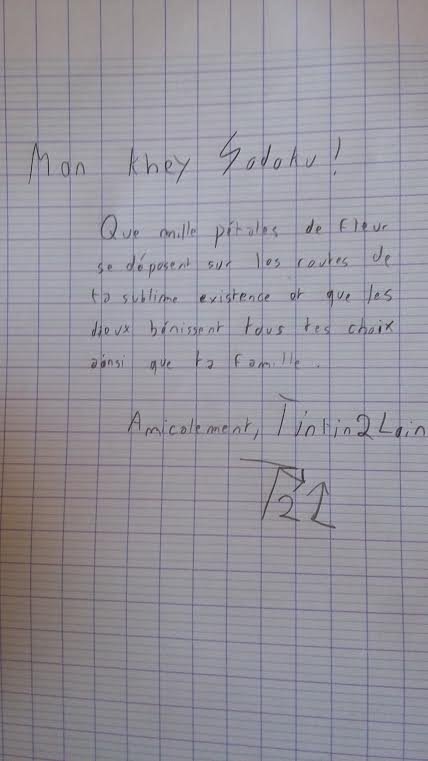 Mon khey Sadoku!
Que mille pétales de fleur
se déposent sur les routes de
ta sublime existence et que les
dieux bénissent tous tes choix
ainsi que ta famille.
Amicalement, Tintin2Lain
T2L